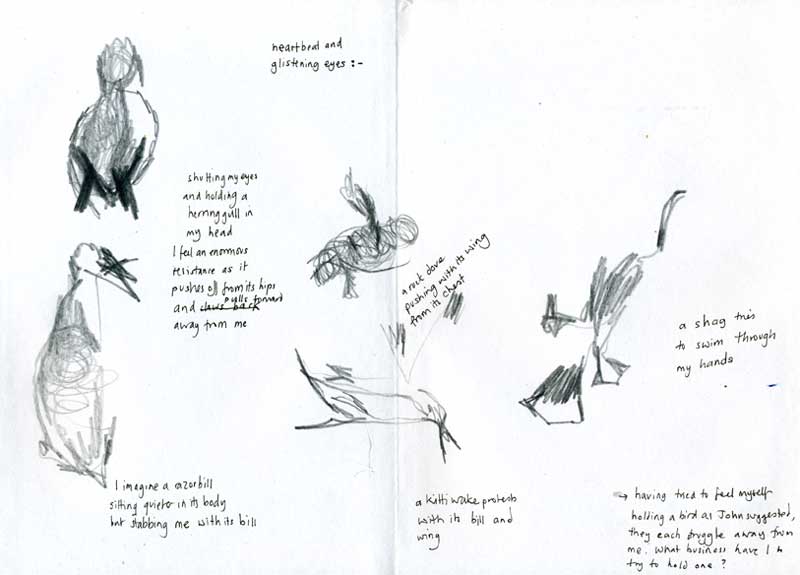 heartbeat and
glistening eyes :-
shutting my eyes
and holding a
herring gull in
my head
I feel an enormous
resistance as it
pushes off from its hips
and claws back pulls forward
away from me
a rock dove
pushing with its wing
from its chest
a shag tries
to swim through
my hands
I imagine a razorbill
sitting quieter in its body
but stabbing me with its bill
a kittiwake protests
with its bill and
wing
→ having tried to feel myself
holding a bird as John suggested,
they each struggle away from
me. What business have I to
try to hold one?